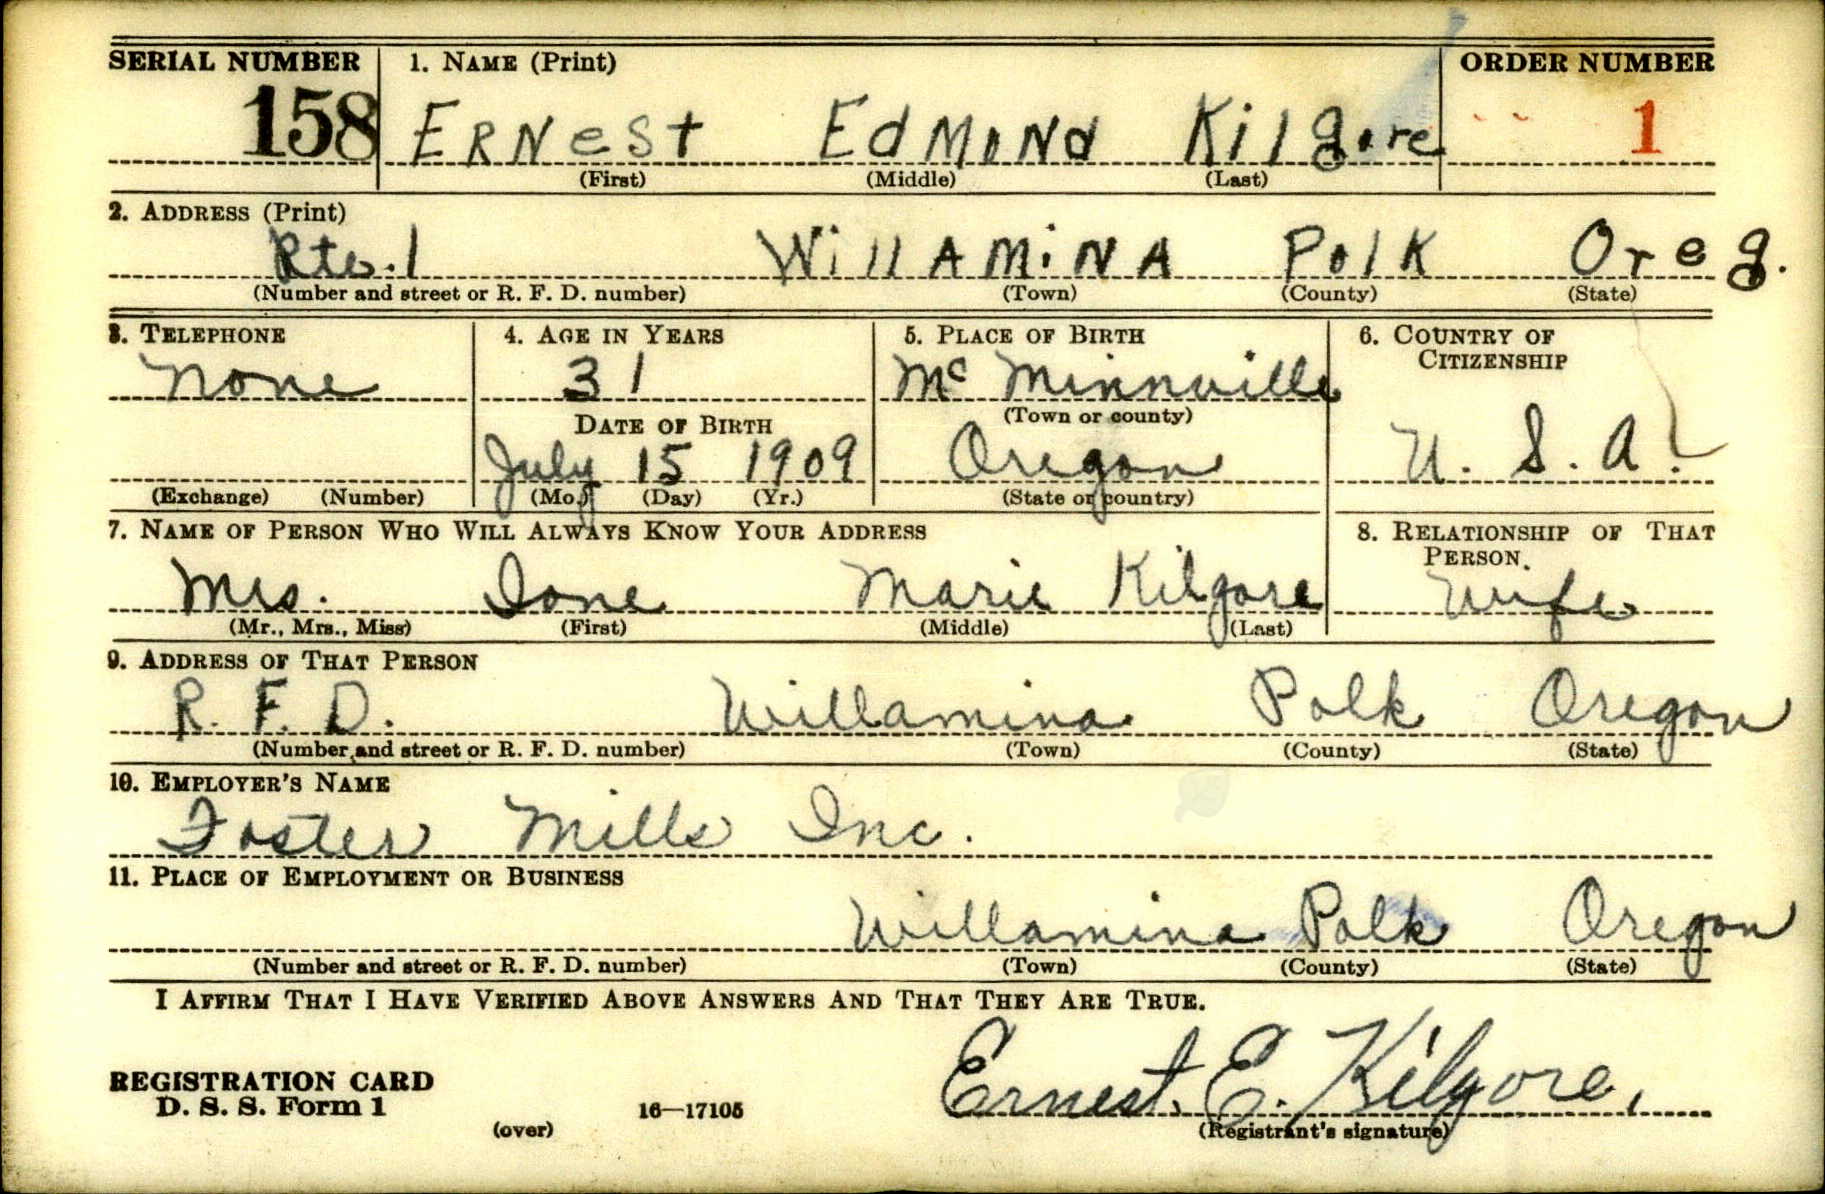 SERIAL NUMBER 1. NAME (Print) ORDER NUMBER
158 ERNesT EdMoNd Kilgore 1
(First) (Middle) (Last)
2. ADDRESS (Print)
Rte. 1 WillAMiNA Polk Oreg.
(Number and street or R. F. D. number) (Town) (County) (State)
3. TELEPHONE 4. AGE IN YEARS 5. PLACE OF BIRTH 6. COUNTRY OF
CITIZENSHIP
None 31 McMinnville
(Town or county)
DATE OF BIRTH
July 15 1909 Oregon U. S. A.
(Exchange) (Number) (Mo.) (Day) (Yr.) (State or country)
7. NAME OF PERSON WHO WILL ALWAYS KNOW YOUR ADDRESS 8. RELATIONSHIP OF THAT
PERSON.
Mrs. Ione Marie Kilgore Wife
(Mr., Mrs., Miss) (First) (Middle) (Last)
9. ADDRESS OF THAT PERSON
R. F. D. Willamina Polk Oregon
(Number and street or R. F. D. number) (Town) (County) (State)
10. EMPLOYER'S NAME
Foster Mills Inc.
11. PLACE OF EMPLOYMENT OR BUSINESS
Willamina Polk Oregon
(Number and street or R. F. D. number) (Town) (County) (State)
I AFFIRM THAT I HAVE VERIFIED ABOVE ANSWERS AND THAT THEY ARE TRUE.
REGISTRATION CARD
D. S. S. Form 1 16—17105 Ernest. E. Kilgore,
(over) (Registrant's signature)